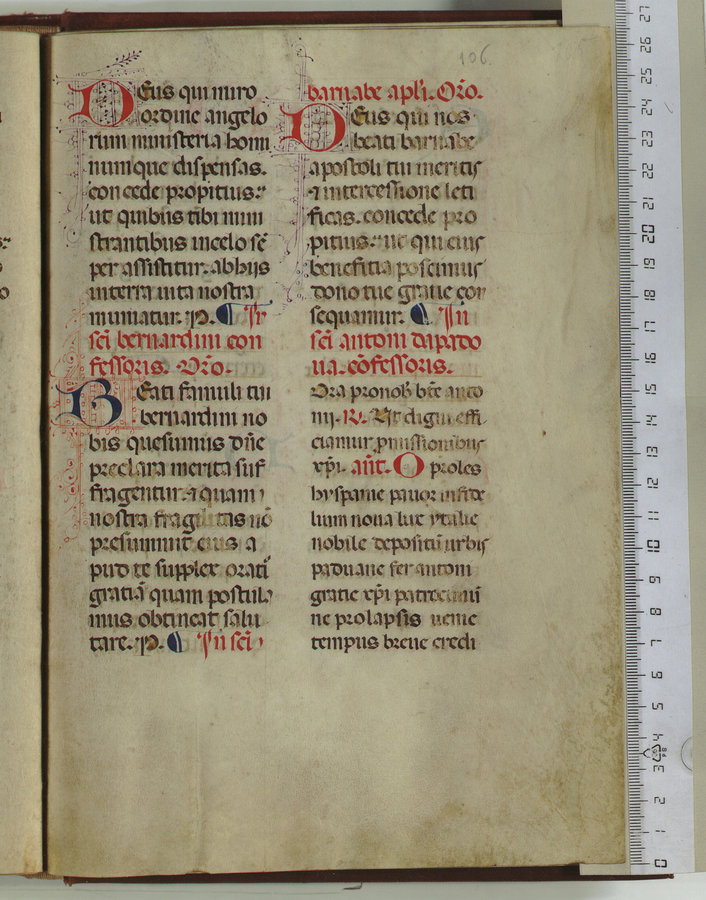 106.
DEus qui miro
ordine angelo
rum ministeria homi
numque dispensas.
concede propitius:
ut quibus tibi mini
strantibus incelo sē
per assistitur. ab hijs
interra uita nostra
muniatur. P. ¶ In
sc̄i bernardini con
fessoris. Orō.
BEati famuli tui
bernardini no
bis quesumus dn̄e
preclara merita suf
fragentur. ⁊ quam
nostra fragilitas nō
presumit eius a
pud te supplex oratī
gratiā quam postula
mus obtineat salu
tare. P. ¶ In sc̄i
barnabe apl̄i. Orō.
DEus qui nos
beati barnabe
apostoli tui meritis
⁊ intercessione leti
ficas. concede pro
pitius: ut qui eius
benefitia poscimus
dono tue gratie con
sequamur. ¶ In
sc̄i antonii dapado
ua. cōfessoris.
Ora pronob̄ bt̄e anto
nii. R. Ut digni effi
ciamur pmissionibus
xp̄i. an̄t. O proles
hyspanie pauor infide
lium noua lux ytalie
nobile depositū urbis
paduane fer antoni
gratie xp̄i patrociniū
ne prolapsis uenie
tempus breue credi